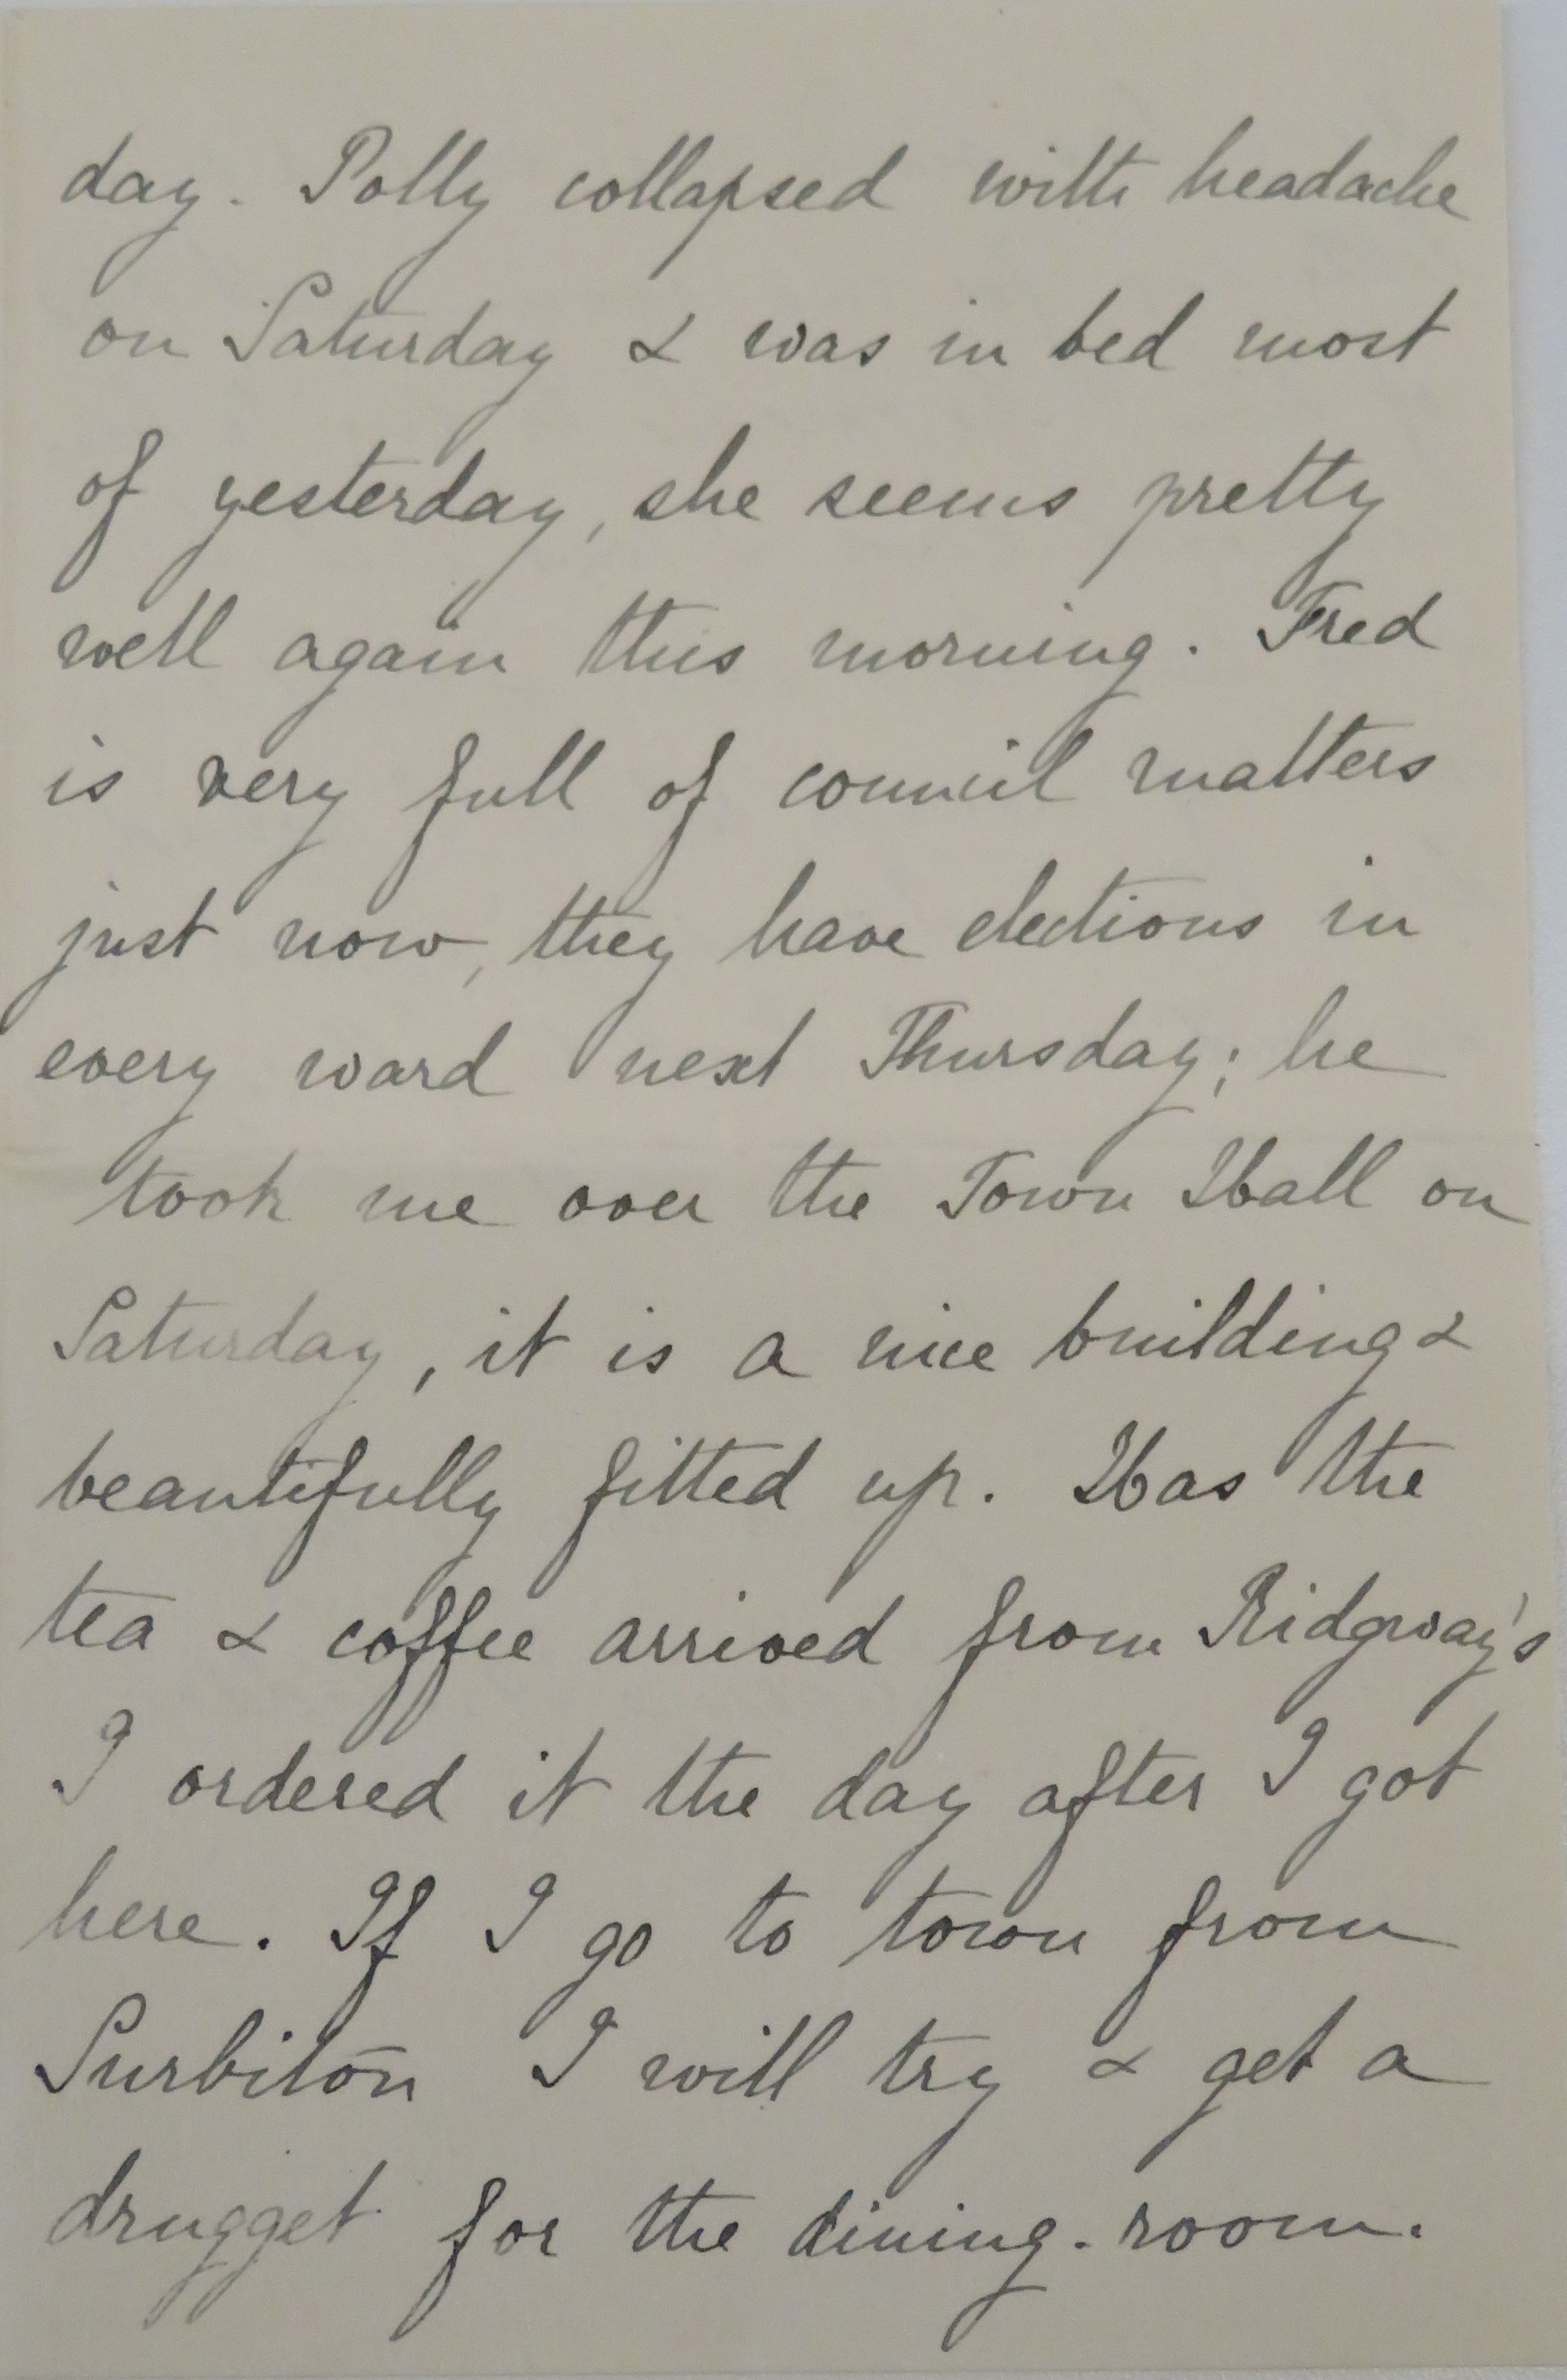 day. Polly collapsed with headache
on Saturday & was in bed most
of yesterday, she seems pretty
well again this morning. Fred
is very full of council matters
just now, they have elections in
every ward next Thursday; he
took me over the Town Hall on
Saturday, it is a nice building &
beautifully fitted up. Has the
tea & coffee arrived from Ridgway's
I ordered it the day after I got
here. If I go to town from
Surbiton I will try & get a
drugget for the dining-room.